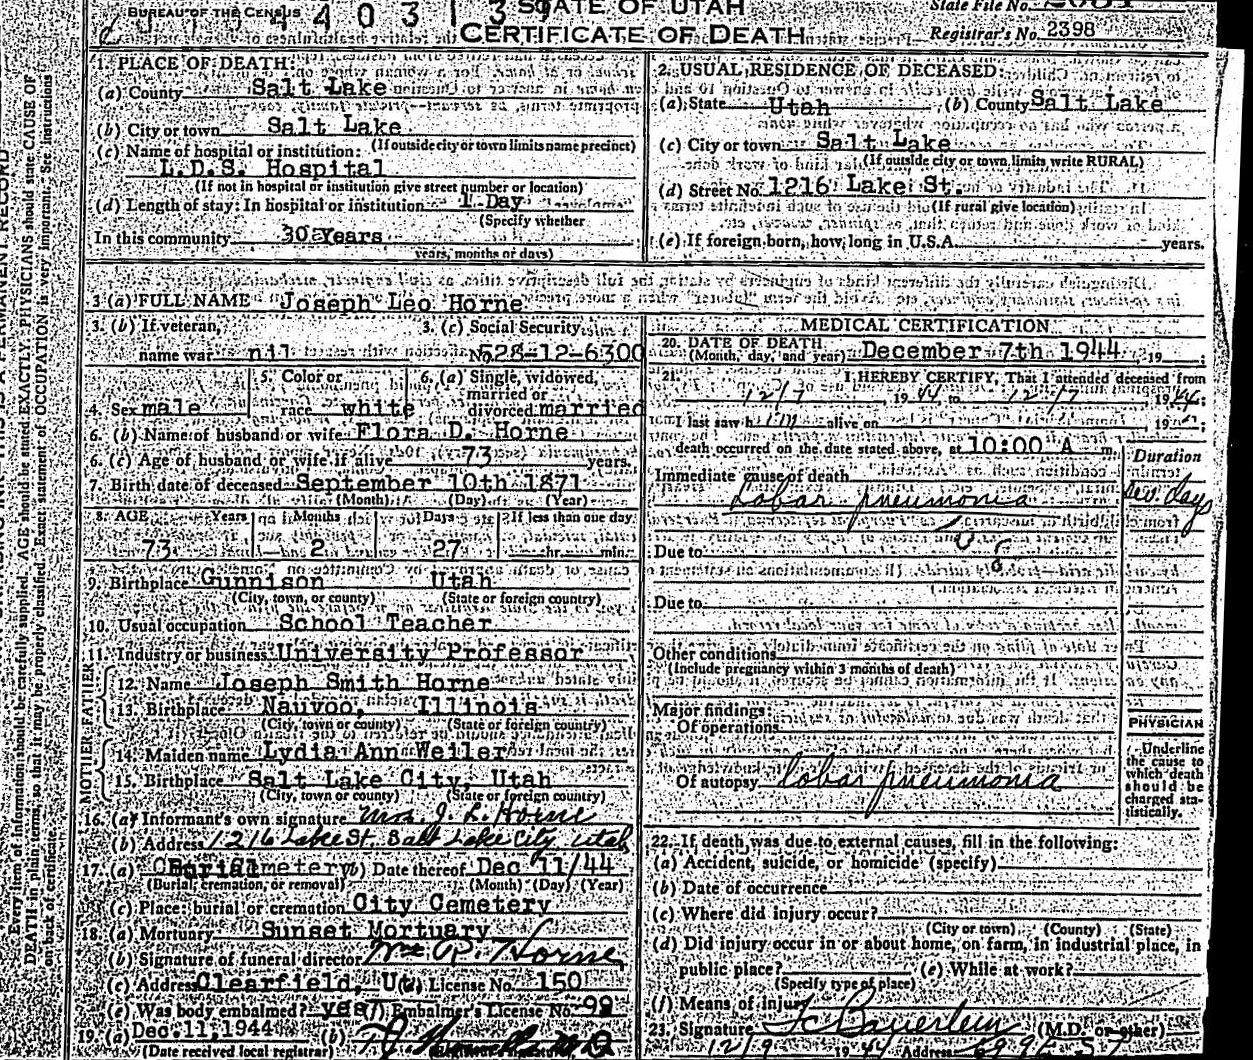 BUREAU OF THE CENSUS
STATE OF UTAH
CERTIFICATE OF DEATH
State File No.
Registrar's No. 2398
1. PLACE OF DEATH:
(a) County Salt Lake
(b) City or town Salt Lake
(If outside city or town limits name precinct)
(c) Name of hospital or institution:
L.D.S. Hospital
(If not in hospital or institution give street number or location)
(d) Length of stay: In hospital or institution 1 Day
(Specify whether
In this community 30 Years
years, months or days)
2. USUAL RESIDENCE OF DECEASED:
(a) State Utah (b) County Salt Lake
(c) City or town Salt Lake
(If outside city or town limits write RURAL)
(d) Street No. 1216 Lake St.
(If rural give location)
(e) If foreign born, how long in U.S.A. years.
3 (a) FULL NAME Joseph Leo Horne
3. (b) If veteran,
name war nil
3. (c) Social Security
No. 528-12-6300
4. Sex male
5. Color or
race white
6. (a) Single, widowed,
married or
divorced married
6. (b) Name of husband or wife Flora D. Horne
6. (c) Age of husband or wife if alive 73 years.
7. Birth date of deceased September 10th 1871
(Month) (Day) (Year)
8. AGE Years Months Days If less than one day
73 2 27 hr. min.
9. Birthplace Gunnison Utah
(City, town, or county) (State or foreign country)
10. Usual occupation School Teacher
11. Industry or business University Professor
FATHER
12. Name Joseph Smith Horne
13. Birthplace Nauvoo, Illinois
(City, town or county) (State or foreign country)
MOTHER
14. Maiden name Lydia Ann Weiler
15. Birthplace Salt Lake City, Utah
(City, town or county) (State or foreign country)
16. (a) Informant's own signature Mrs. J. L. Horne
(b) Address 1216 Lake St. Salt Lake City, Utah
17. (a) Burial (b) Date thereof Dec 11/44
(Burial, cremation, or removal) (Month) (Day) (Year)
(c) Place: burial or cremation City Cemetery
18. (a) Mortuary Sunset Mortuary
(b) Signature of funeral director Wm R. Horne
(c) Address Clearfield, U(d) License No. 150
(e) Was body embalmed? yes (f) Embalmer's License No. 99
19. (a) Dec. 11, 1944 (b)
(Date received local registrar)
MEDICAL CERTIFICATION
20. DATE OF DEATH
(Month, day, and year) December 7th 1944 19
21. I HEREBY CERTIFY, That I attended deceased from
12/7 1944 to 12/7 1944;
I last saw him alive on 19
death occurred on the date stated above, at 10:00 A m.
Duration
Immediate cause of death
Lobar pneumonia
sev. days
Due to
Due to
Other conditions
(Include pregnancy within 3 months of death)
Major findings:
Of operations
Of autopsy lobar pneumonia
PHYSICIAN
Underline
the cause to
which death
should be
charged sta-
tistically.
22. If death was due to external causes, fill in the following:
(a) Accident, suicide, or homicide (specify)
(b) Date of occurrence
(c) Where did injury occur?
(City or town) (County) (State)
(d) Did injury occur in or about home, on farm, in industrial place, in
public place? (e) While at work?
(Specify type of place)
(f) Means of injury
23. Signature (M.D. or other)
12/9 1944 Address
Every item of information should be carefully supplied. AGE should be stated EXACTLY. PHYSICIANS should state CAUSE OF
DEATH in plain terms, so that it may be properly classified. Exact statement of OCCUPATION is very important. See instructions
on back of certificate.